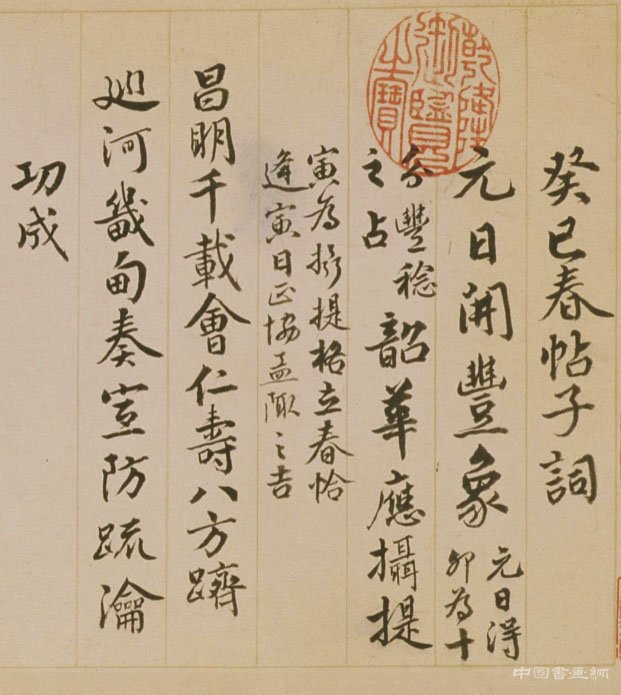 癸巳春帖子詞
元日開豐象
元日得
卯為十
分豐稔
之占
韶華應攝提
寅為攝提格立春恰
逢寅日正協孟陬之吉
昌明千載會仁壽八方躋
巡河畿甸奏宣防疏瀹
功成
乾隆御覽之寶
中国書画網